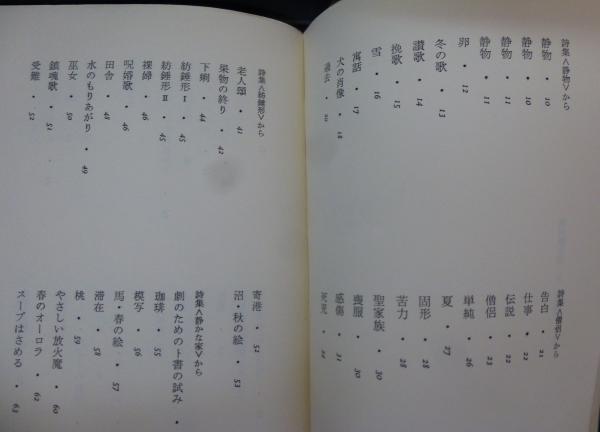 詩集<静物>から
静物・10
静物・10
静物・11
静物・11
卵・12
冬の歌・13
讃歌・14
挽歌・15
雪・16
寓話・17
犬の肖像・18
過去・20
詩集<僧侶>から
告白・21
仕事・22
伝説・22
僧侶・23
単純・26
夏・27
固形・28
苦力・28
聖家族・30
喪服・30
感傷・31
死児・34
詩集<紡錘形>から
老人頌・41
果物の終り・42
下痢・44
紡錘形Ⅰ・45
紡錘形Ⅱ・45
裸婦・46
呪婚歌・46
田舎・48
水のもりあがり・49
巫女・50
鎮魂歌・51
受難・52
寄港・52
沼・秋の絵・53
詩集<静かな家>から
劇のためのト書の試み・
珈琲・55
模写・56
馬・春の絵・57
滞在・58
桃・59
やさしい放火魔・60
春のオーロラ・62
スープはさめる・63